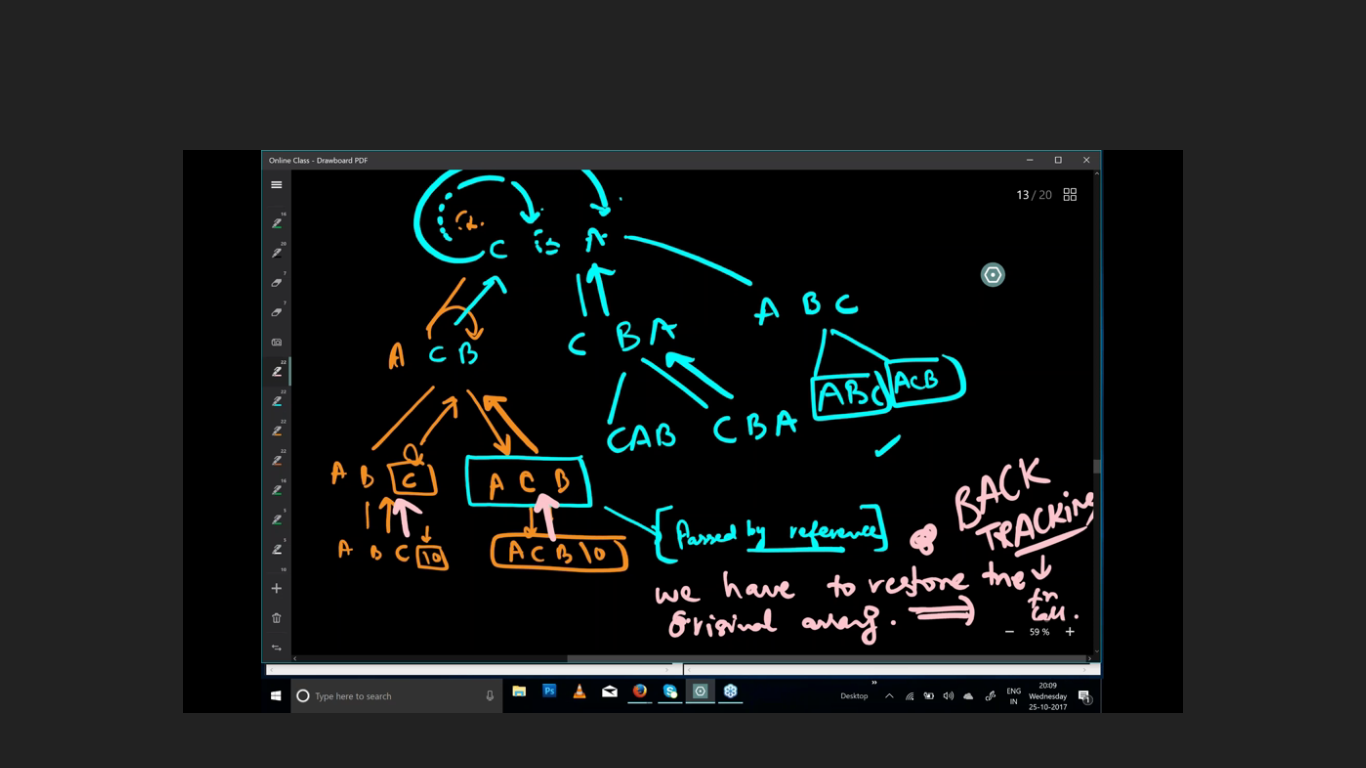 Online Class - Drawboard PDF
13 / 20
C is A
A C B
C B A
A B C
ABC ACB
CAB CBA
A B C
A C B
Passed by reference
A B C \0
A C B \0
BACK
TRACKING
we have to restore the
Original
fn
call.
59 %
Type here to search
Desktop
ENG
IN
20:09
Wednesday
25-10-2017